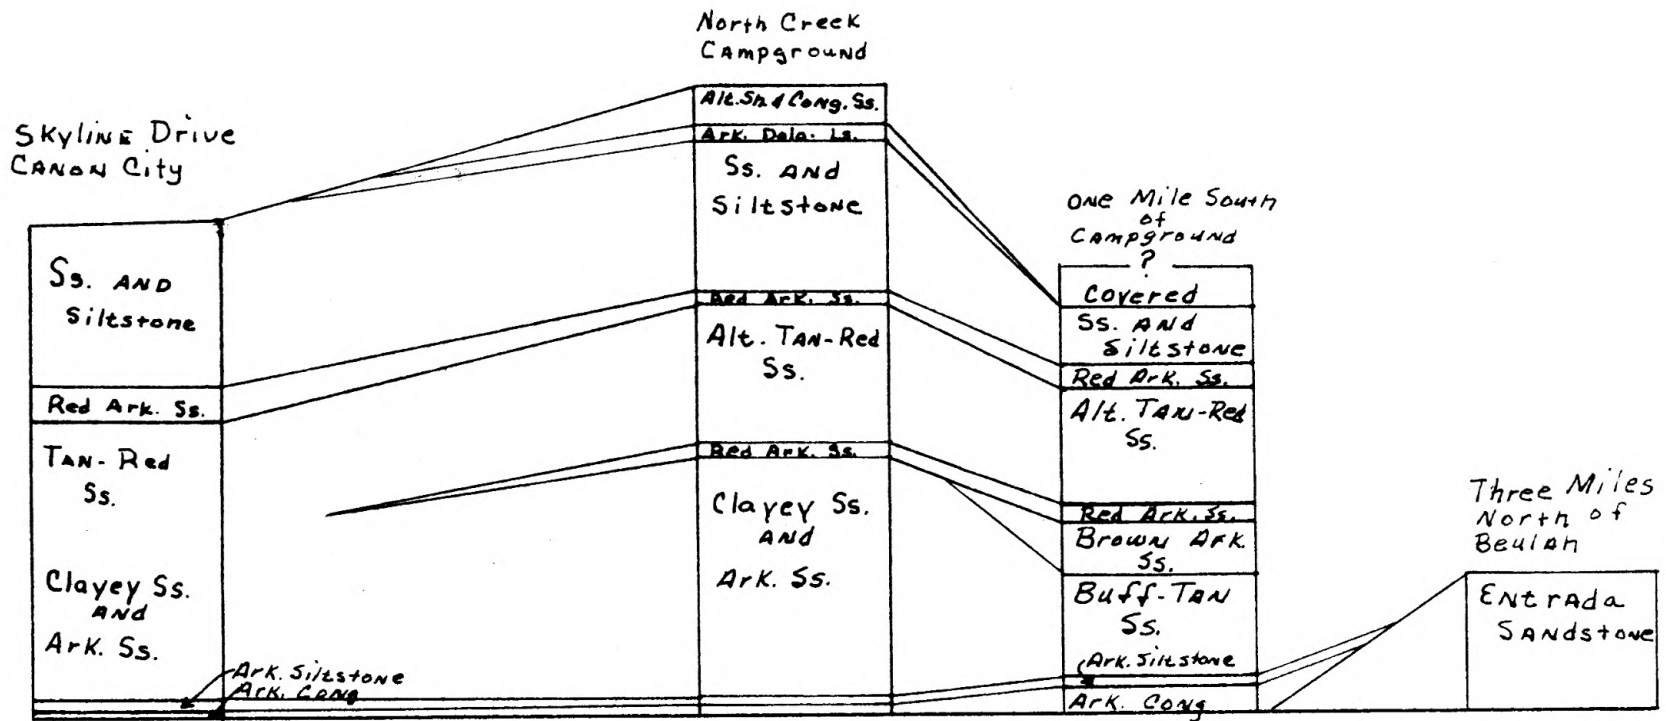 Skyline Drive
Canon City
Ss. and
Siltstone
Red Ark. Ss.
Tan-Red
Ss.
Clayey Ss.
and
Ark. Ss.
Ark. Siltstone
Ark. Cong
North Creek
Campground
Alt. Sh & Cong. Ss.
Ark. Dolo. Ls.
Ss. and
Siltstone
Red Ark. Ss.
Alt. Tan-Red
Ss.
Red Ark. Ss.
Clayey Ss.
and
Ark. Ss.
One Mile South
of
Campground
?
Covered
Ss. and
Siltstone
Red Ark. Ss.
Alt. Tan-Red
Ss.
Red Ark. Ss.
Brown Ark.
Ss.
Buff-Tan
Ss.
Ark. Siltstone
Ark. Cong
Three Miles
North of
Beulah
Entrada
Sandstone